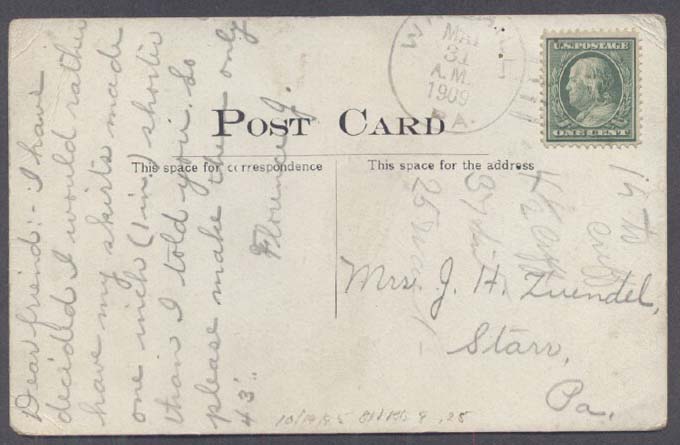 POST CARD
This space for correspondence
This space for the address
U.S. POSTAGE
ONE CENT
MAY
31
A.M.
1909
PA.
Dear friend:- I have
decided I would rather
have my skirts made
one inch (1 in.) shorter
than I told you. So
please make them only
43".
Florence J.
Mrs. J. H. Zuendel,
Starr,
Pa.